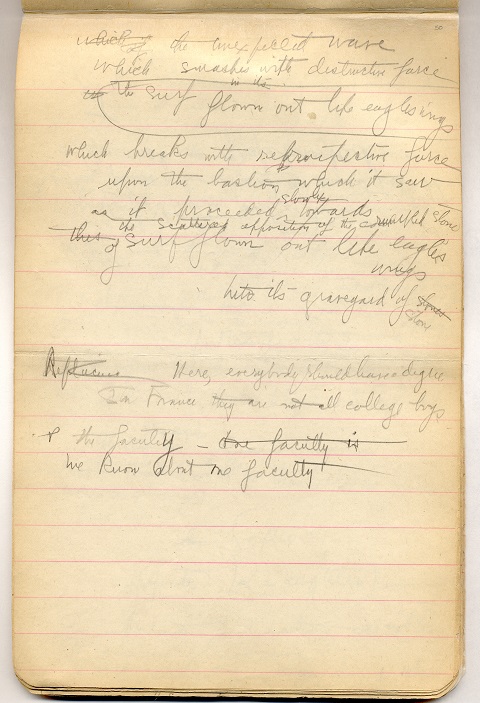 which the unexpected wave
which smashes with distructive force
in its
the surf flown out like eagles ings
which breaks with retrospective force
upon the bastion which it saw
slowly
as if proceeded towards
the scattered opposition of the stone
this surf flown out like eagles
of wings
into its graveyard of stones
stone
Here, everybody should have a degree
In France they are not all college boys
the faculty – one faculty is
We know about one faculty